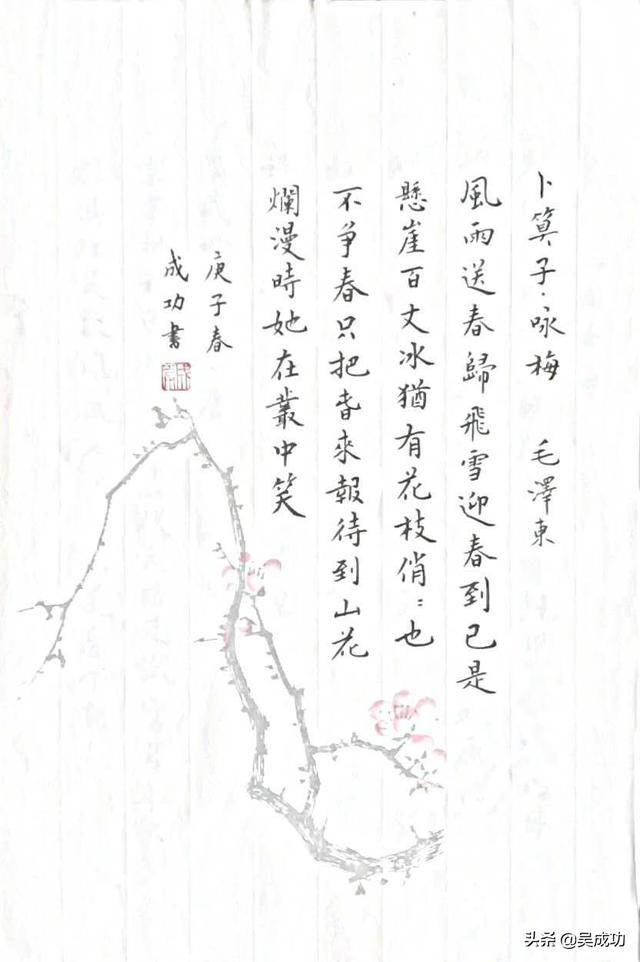 卜算子·咏梅 毛澤東
風雨送春歸飛雪迎春到已是
懸崖百丈冰猶有花枝俏〻也
不争春只把春來報待到山花
爛漫時她在叢中笑
庚子春
成功書
头条 @吴成功